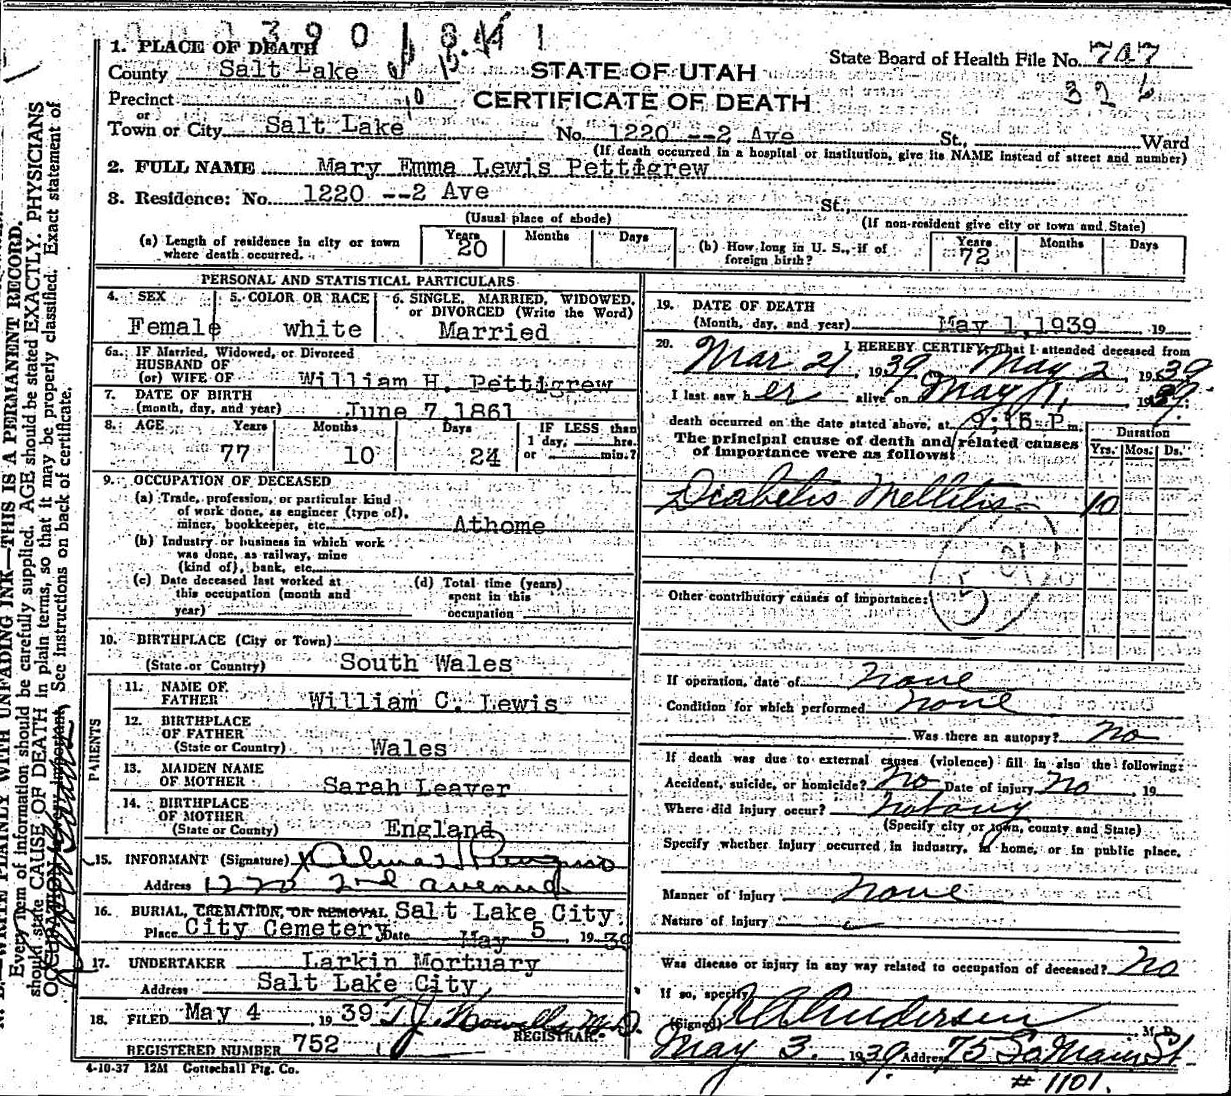 1. PLACE OF DEATH
County Salt Lake
STATE OF UTAH
State Board of Health File No. 747
326
Precinct
or
CERTIFICATE OF DEATH
Town or City Salt Lake No. 1220 --2 Ave St., Ward
(If death occurred in a hospital or institution, give its NAME instead of street and number)
2. FULL NAME Mary Emma Lewis Pettigrew
3. Residence: No. 1220 --2 Ave St.,
(Usual place of abode) (If non-resident give city or town and State)
(a) Length of residence in city or town where death occurred. Years 20 Months Days
(b) How long in U. S., if of foreign birth? Years 72 Months Days
PERSONAL AND STATISTICAL PARTICULARS
4. SEX 5. COLOR OR RACE 6. SINGLE, MARRIED, WIDOWED, or DIVORCED (Write the Word)
Female white Married
6a. IF Married, Widowed, or Divorced
HUSBAND OF
(or) WIFE OF William H. Pettigrew
7. DATE OF BIRTH
(month, day, and year) June 7, 1861
8. AGE Years Months Days IF LESS than
1 day, hrs.
77 10 24 or min.?
9. OCCUPATION OF DECEASED
(a) Trade, profession, or particular kind
of work done, as engineer (type of),
miner, bookkeeper, etc. Athome
(b) Industry or business in which work
was done, as railway, mine
(kind of), bank, etc.
(c) Date deceased last worked at this occupation (month and year)
(d) Total time (years) spent in this occupation
10. BIRTHPLACE (City or Town)
(State or Country) South Wales
PARENTS
11. NAME OF FATHER William C. Lewis
12. BIRTHPLACE OF FATHER
(State or Country) Wales
13. MAIDEN NAME OF MOTHER Sarah Leaver
14. BIRTHPLACE OF MOTHER
(State or County) England
15. INFORMANT (Signature)
Address 1220 2nd avenue
16. BURIAL, CREMATION, OR REMOVAL Salt Lake City
Place City Cemetery Date May 5, 1939
17. UNDERTAKER Larkin Mortuary
Address Salt Lake City,
18. FILED May 4 1939 T J Howells M.D.
REGISTRAR.
REGISTERED NUMBER 752
4-10-37 12M Gottschall Ptg. Co.
19. DATE OF DEATH
(Month, day, and year) May 1, 1939 19
20. I HEREBY CERTIFY, That I attended deceased from
Mar 21 1939 May 2, 1939
I last saw her alive on May 1, 1939
death occurred on the date stated above, at 9:15 P m.
The principal cause of death and related causes of importance were as follows:
Duration
Yrs. Mos. Ds.
Diabetis Mellitis 10
59
Other contributory causes of importance:
If operation, date of none
Condition for which performed none
Was there an autopsy? no
If death was due to external causes (violence) fill in also the following:
Accident, suicide, or homicide? no Date of injury no 19
Where did injury occur?
(Specify city or town, county and State)
Specify whether injury occurred in industry, in home, or in public place.
Manner of injury none
Nature of injury
Was disease or injury in any way related to occupation of deceased? no
If so, specify
(Signed) R A Anderson M. D.
May 3. 1939. Address 75 So Main St
# 1101.
WRITE PLAINLY WITH UNFADING INK—THIS IS A PERMANENT RECORD.
Every item of information should be carefully supplied. AGE should be stated EXACTLY. PHYSICIANS
should state CAUSE OF DEATH in plain terms, so that it may be properly classified. Exact statement of
OCCUPATION is very important. See instructions on back of certificate.